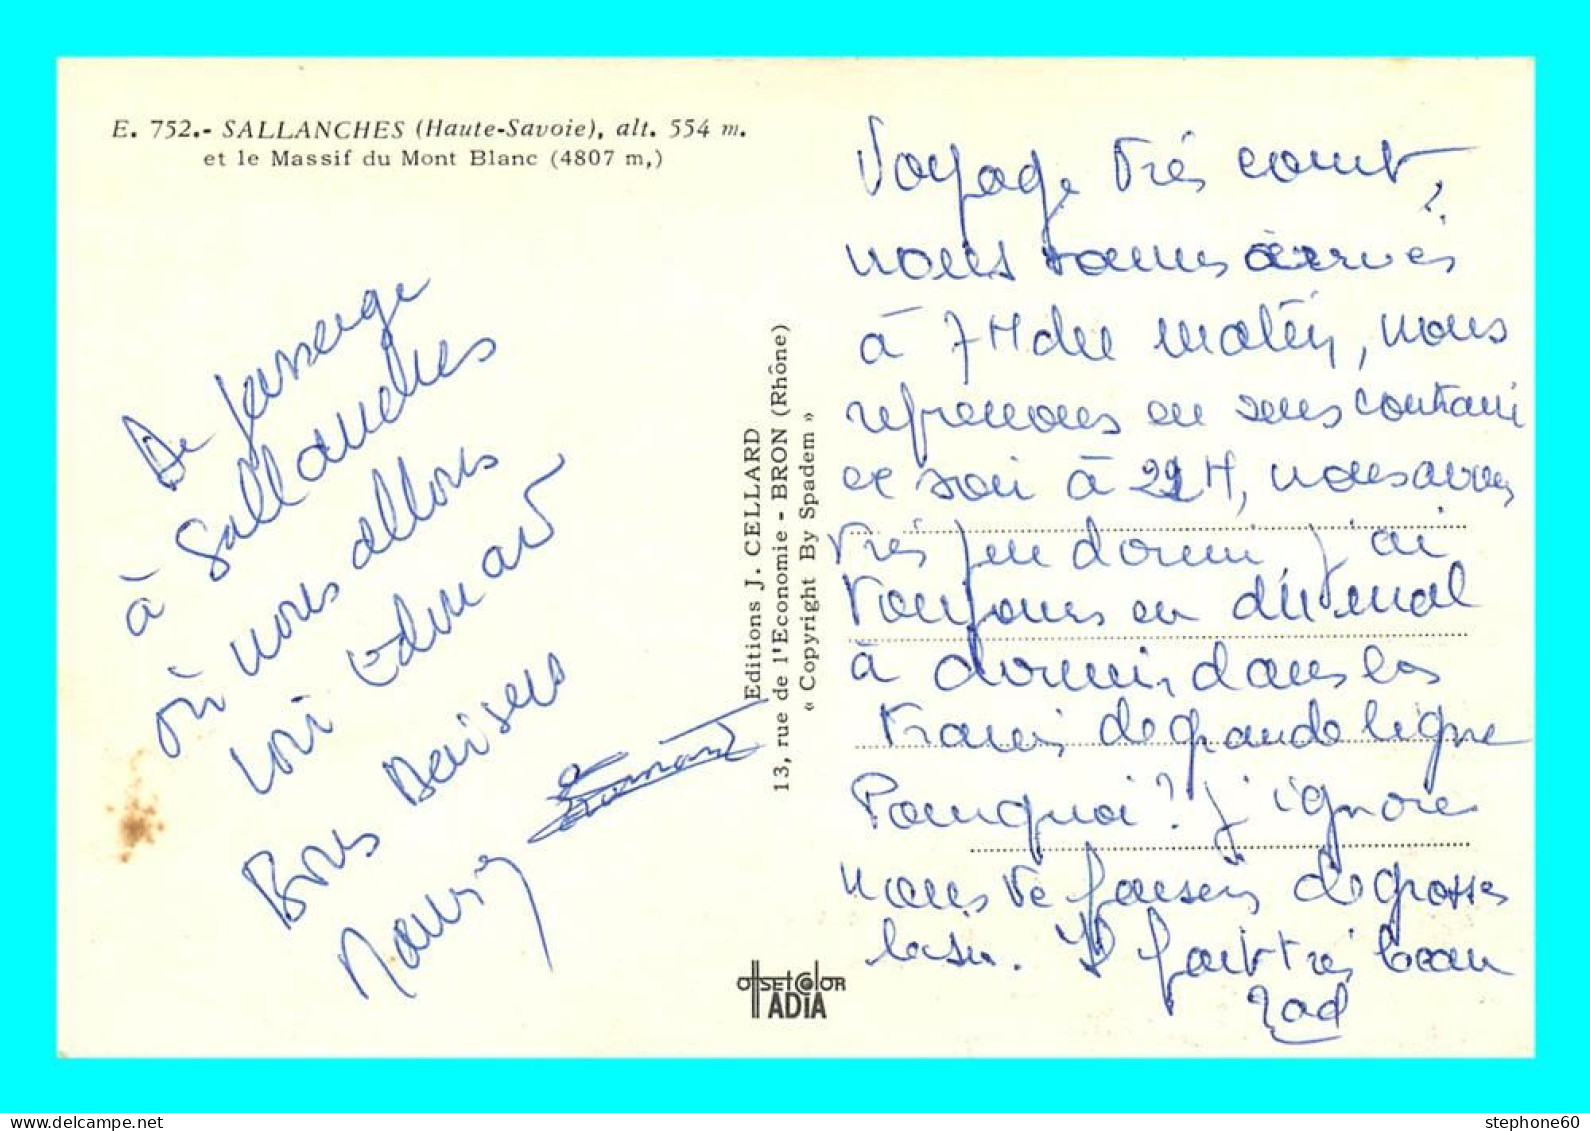 E. 752.- SALLANCHES (Haute-Savoie), alt. 554 m.
et le Massif du Mont Blanc (4807 m,)
De passage
à Sallanches
où nous allons
voir Edouard
Bons Baisers
Editions J. CELLARD
13, rue de l'Economie - BRON (Rhône)
« Copyright By Spadem »
OFFSET COLOR
ADIA
Voyage très court,
nous sommes arrivés
à 7H du matin, nous
reprenons en sens contraire
ce soir à 22H, nous avons
très peu dormi, j'ai
toujours eu du mal
à dormir, dans les
trains de grande ligne
Pourquoi? j'ignore
nous te faisons de grosses
bises. Il fait très beau
stephone60